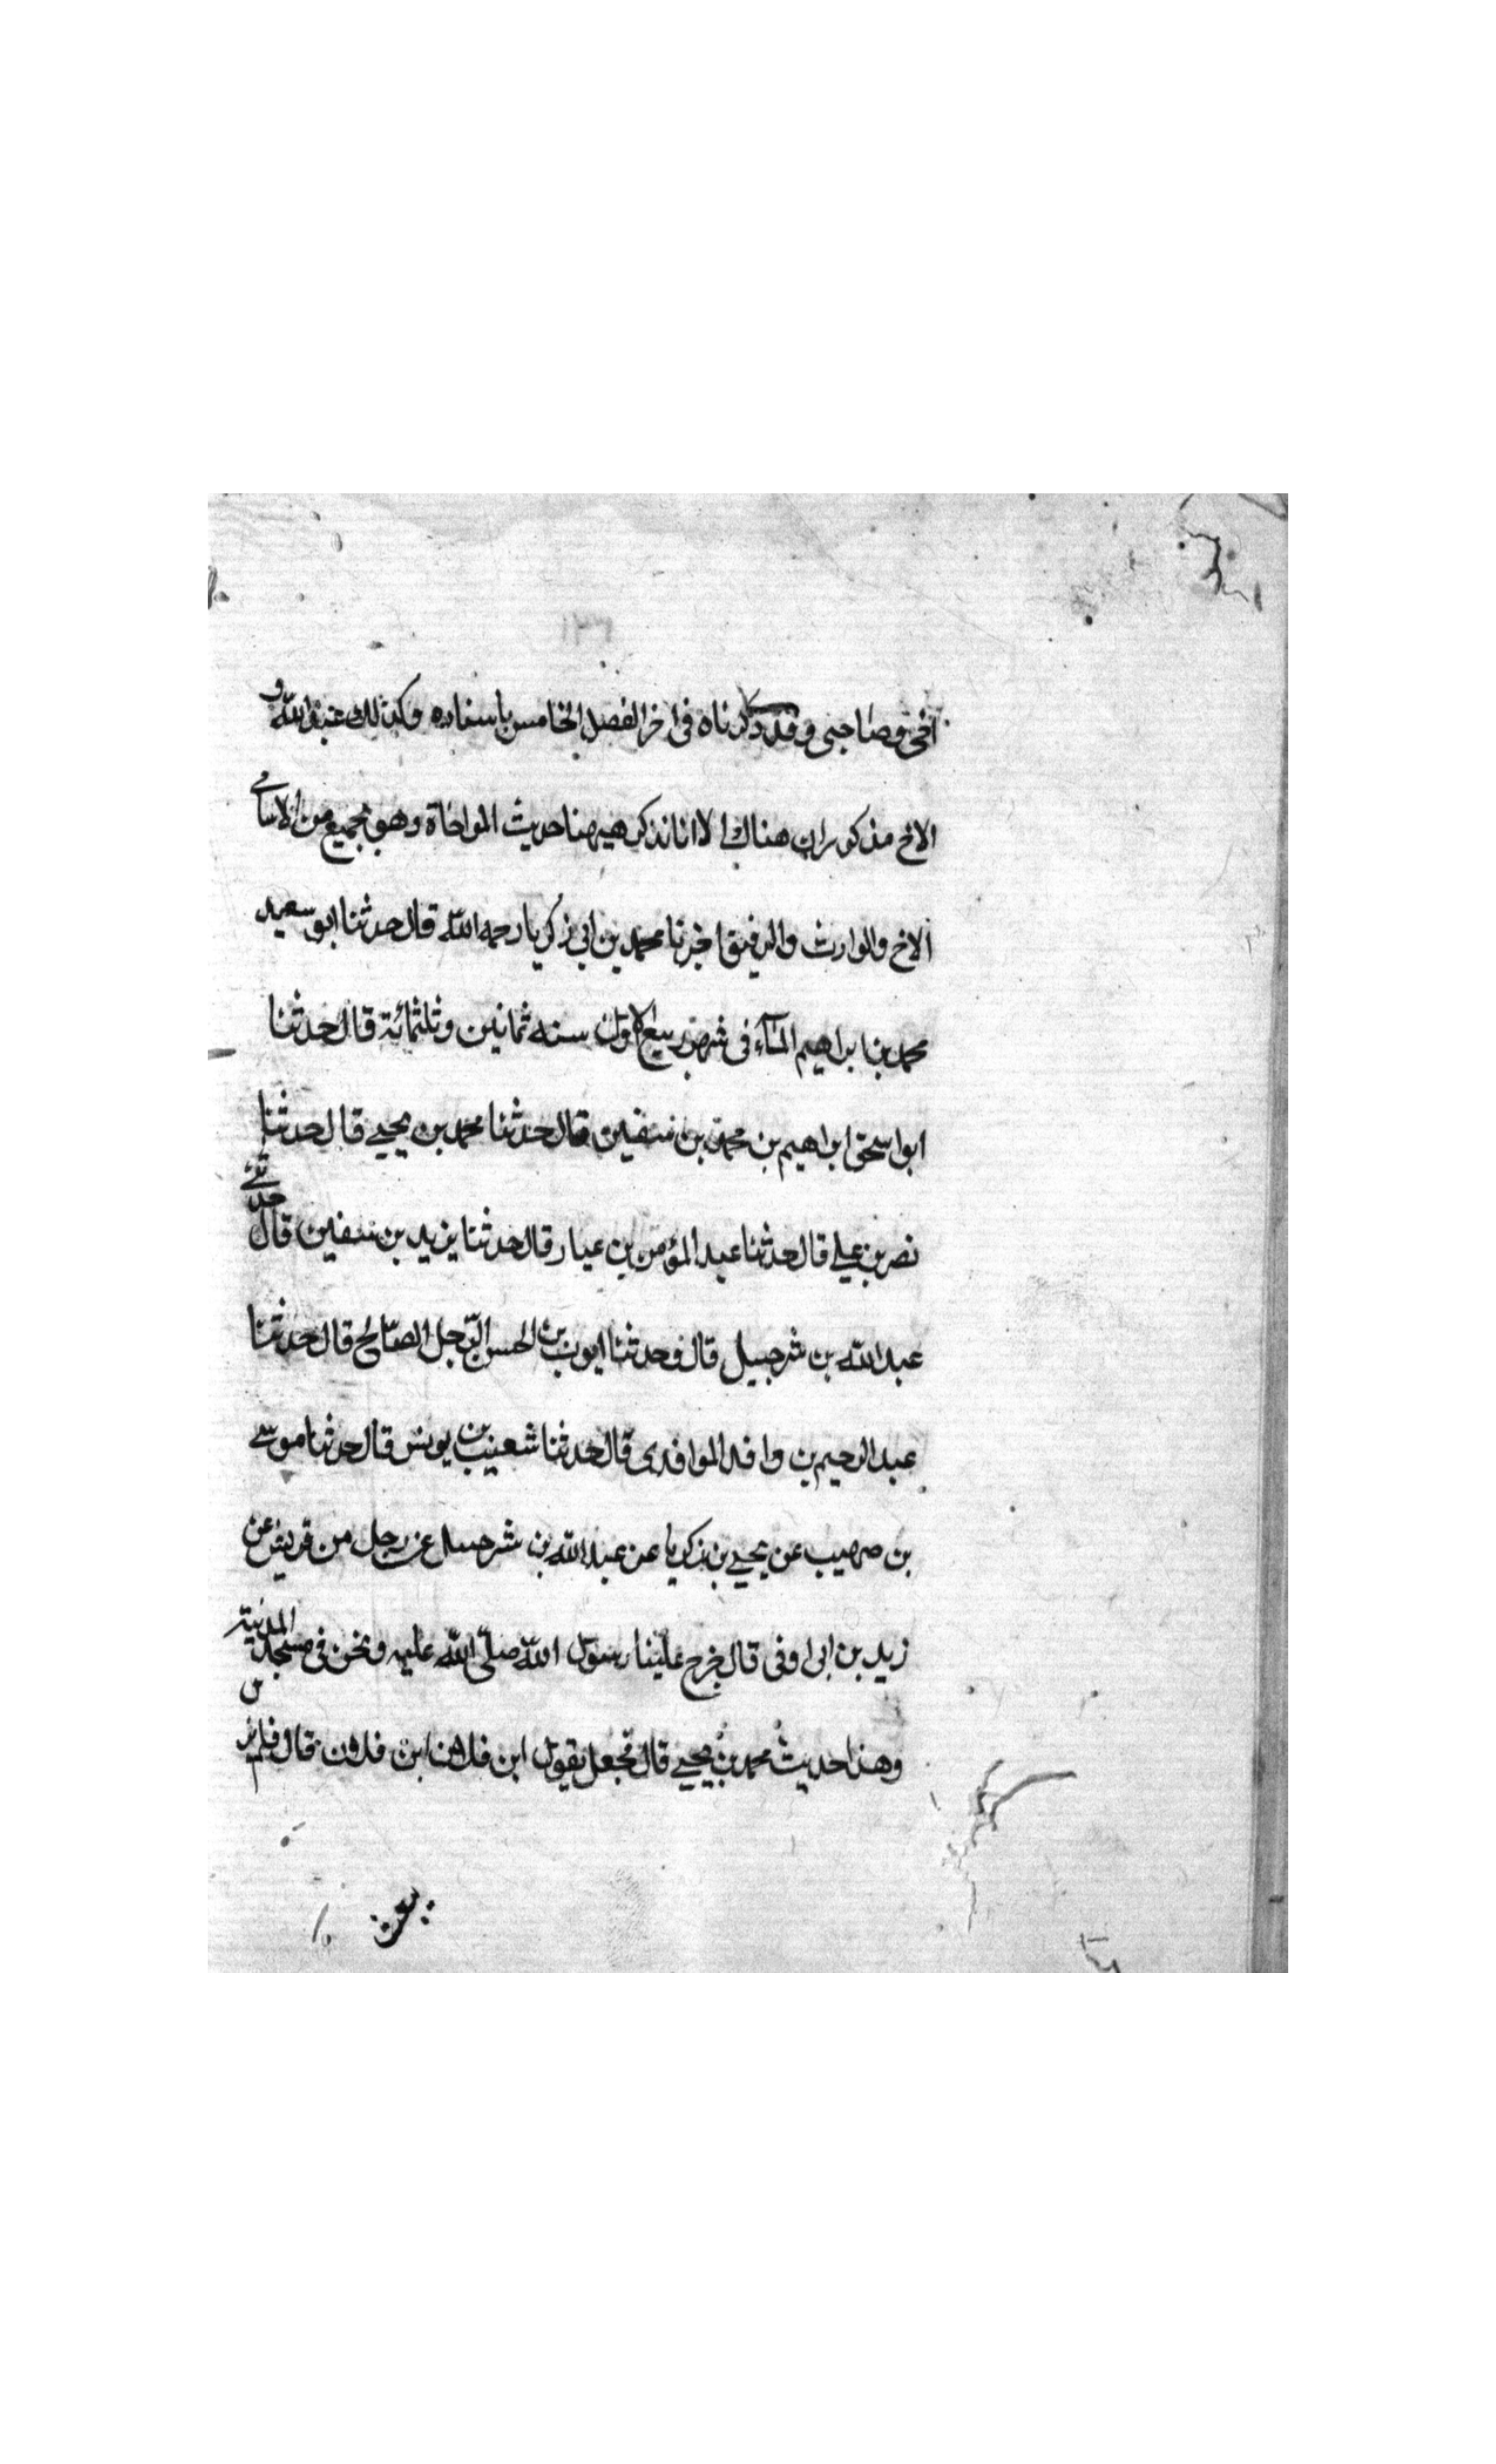 اخى وصاحبى وقد ذكرناه فى اخر الفصل الخامس باسناده وكذلك عبد الله و
الاخ مذكوران هناك الا انا نذكر هيهنا حديث المواخاة وهو بجميع من الاسامے
الاخ والوارث والرفيق اخبرنا محمد بن ابى زكريا رحمه الله قال حدثنا ابو سعيد
محمد بن ابراهيم فى شهر ربيع الاول سنه ثمانين وثلثمائة قال حدثنا
ابو اسحق ابراهيم بن محمد بن سفين قال حدثنا محمد بن يحيے قال حدثنا
نصر بن علے قال حدثنا عبد المؤمن بن عباد قال حدثنا يزيد بن سفين قال حدثنے
عبد الله بن شرحبيل قال وحدثنا ايوب بن الحسن الرجل الصالح قال حدثنا
عبد الرحيم بن وافد الوافدى قال حدثنا شعيب بن يونس قال حدثنا موسے
بن صهيب عن يحيے بن زكريا عن عبد الله بن شرحبيل عن رجل من قريش عن
زيد بن ابى اوفى قال خرج علينا رسول الله صلّى الله عليه ونحن فى مسجد المدينة
وهذا حديث محمد بن يحيے قال فجعل يقول اين فلان اين فلان قال فلم يزل